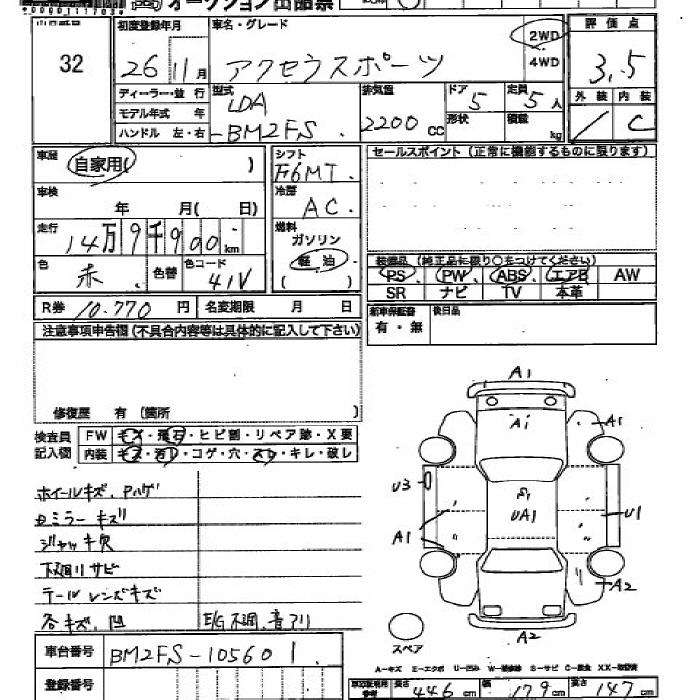 オークション出品票
32
初度登録年月
車名・グレード
評価点
26 11月
アクセラスポーツ
2WD
4WD
3.5
ディーラー・並行
モデル年式 年
ハンドル 左・右
型式
LDA
-BM2FS
排気量
2200 CC
ドア 5
形状
定員 5 人
積載 kg
外装 内装
/ C
車歴 自家用( )
シフト
F6MT
セールスポイント(正常に機能するものに限ります)
車検
年 月( 日)
冷房
AC
走行
14万9千900km
燃料
ガソリン
軽油
( )
色
赤
色替
色コード
41V
装備品(純正品に限り○をつけてください)
PS PW ABS エアB AW
SR ナビ TV 本革
R券 10,770 円 名変期限 月 日
新車保証書
有・無
後日品
注意事項申告欄(不具合内容等は具体的に記入して下さい)
修復歴 有(箇所 )
検査員
記入欄
FW キズ・飛石・ヒビ割・リペア跡・X要
内装 キズ・汚レ・コゲ・穴・スレ・キレ・破レ
ホイールキズ、Pハゲ
ミラーキズ
ジャッキ欠
下回りサビ
テールレンズキズ
各キズ、凹
E/G不調、音アリ
A1
A1
A1
U3
S1
UA1
U1
A1
A2
A2
スペア
車台番号 BM2FS-105601
登録番号
A-キズ E-エクボ U-凹み S-サビ
長さ 446 cm 幅 179 cm 高さ 147 cm